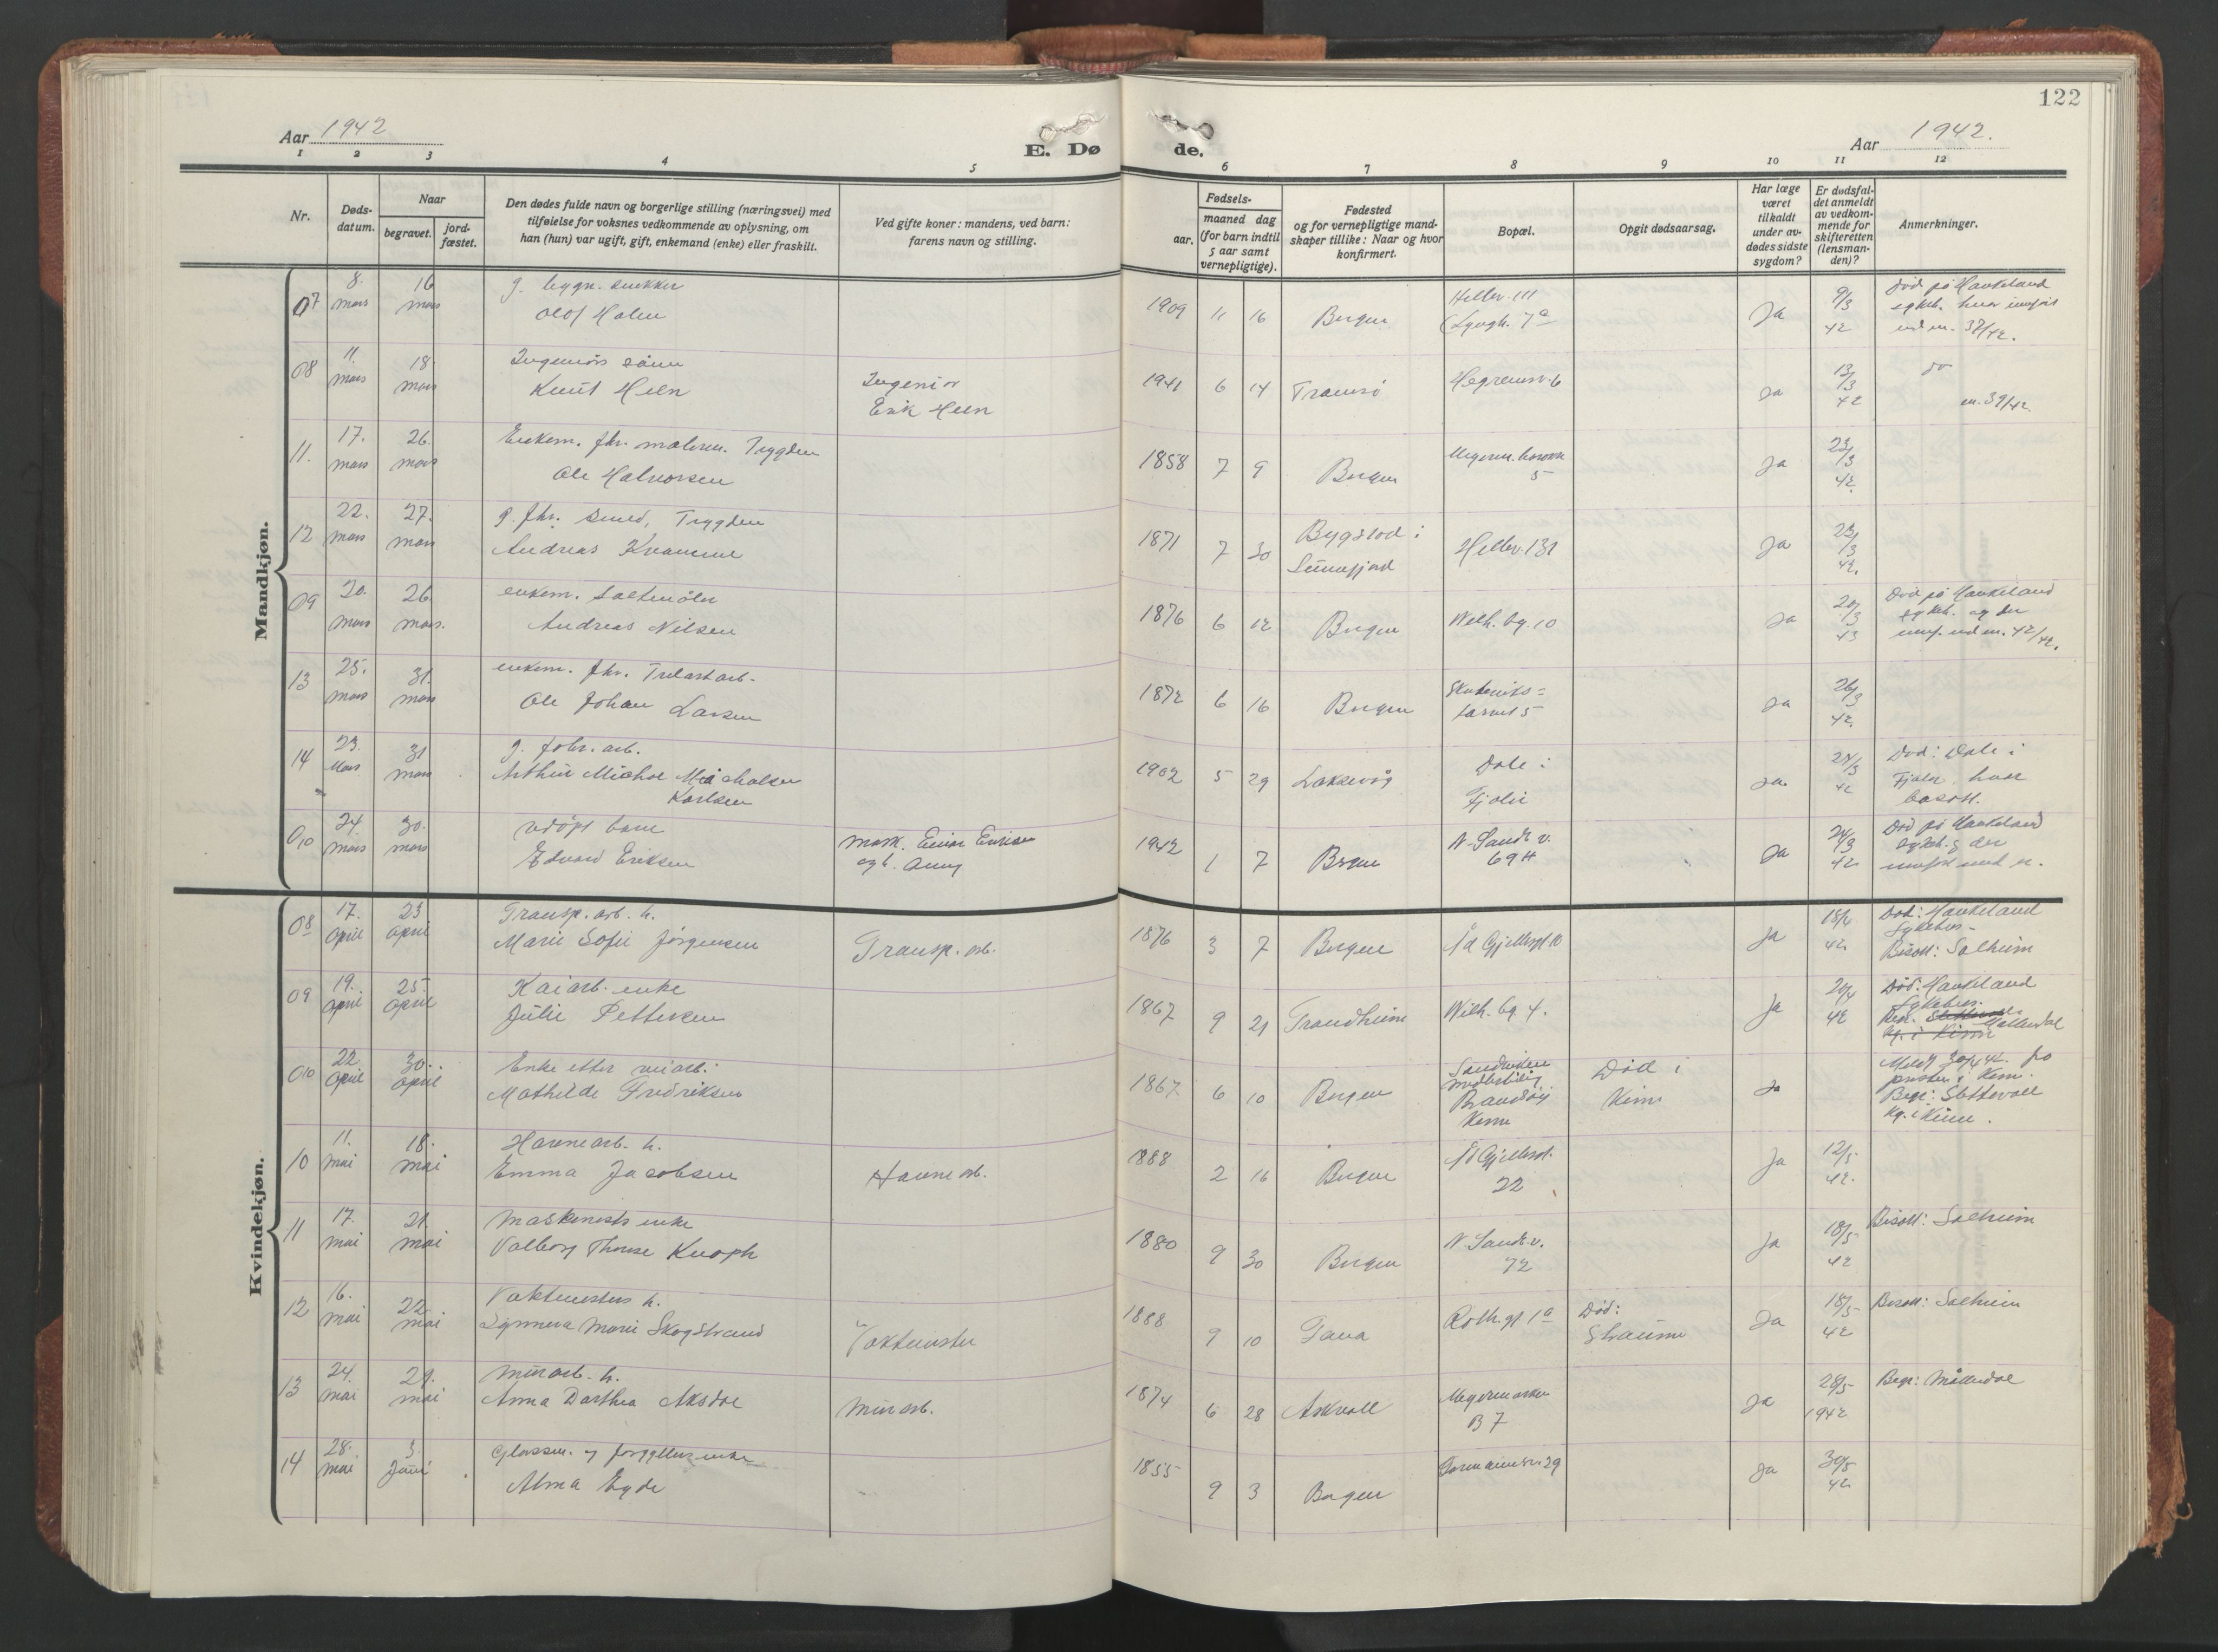 122
Aar 1942
Aar 1942.
E. Døde.
1 2 3 4 5 6 7 8 9 10 11 12
Nr.
Døds-
datum.
Naar
begravet.
jord-
fæstet.
Den dødes fulde navn og borgerlige stilling (næringsvei) med
tilføielse for voksnes vedkommende av oplysning, om
han (hun) var ugift, gift, enkemand (enke) eller fraskilt.
Ved gifte koner: mandens, ved barn:
farens navn og stilling.
Fødsels-
aar.
maaned dag
(for barn indtil
5 aar samt
vernepligtige).
Fødested
og for vernepligtige mand-
skaper tillike: Naar og hvor
konfirmert.
Bopæl.
Opgit dødsaarsag.
Har læge
været
tilkaldt
under av-
dødes sidste
sygdom?
Er dødsfal-
det anmeldt
av vedkom-
mende for
skifteretten
(lensman-
den)?
Anmerkninger.
Mandkjøn.
07 8. mars 16 mars g. bygn. snekker
Olof Holm
1909 11 16 Bergen Hellev. 111 Ja 9/3 42 Død på Haukeland
sykeh. hvor innført
und nr. 37/42.
08 11. mars 18. mars Ingeniørs sönn
Knut Heen
Ingeniør
Erik Heen
1941 6 14 Tromsö Hegrenesv. 6 Ja 13/3 42 do
nr. 39/42.
11. 17. mars 26. mars Enkem. fhv. Trygden
Ole Halvorsen
1858 7 9 Bergen 5 Ja 23/3 42.
12 22. mars 27. mars g. fhv. smed, Trygden
Andreas Kvamme
1871 7 30 Bygstad i
Sunnfjord
Hellev. 131 Ja 23/3 42.
09 20. mars 26. mars. enkem.
Andreas Nilsen
1876 6 12 Bergen Wilh. bg. 10 Ja 20/3 43 Død på Haukeland
sykeh. og der
innf. und nr. 42/42.
13 25. mars 31. mars enkem. fhv. Trelastarb.
Ole Johan Larsen
1872 6 16 Bergen Skuteviks=
torvet 5 Ja 26/3 42.
14 23. Mars 31 mars g. fabr. arb.
Arthur Michal Michalsen
Karlsen
1902 5 29 Laksevåg Dale i
Fjaler Ja. 24/3 42 Død: Dale i
Fjaler, hvor
bosatt.
010 24. mars 30. mars udöpt barn
Edvard Eriksen
mask. Einar Eriksen
og h. Anny
1942 1 7 Bergen N. Sandv. v.
69 H Ja 24/3 42 Død på Haukeland
sykeh. og der
innført und nr.
Kvindekjøn.
08 17. April 23 April Transp. arb. h.
Marie Sofie Jörgensen
Transp. arb.
1876 3 7 Bergen Ja 18/4 42 Død: Haukeland
Sykehus -
Bisatt: Solheim
09 19. April 25. April Kaiarb. enke
Julie Pettersen
1867 9 21 Trondheim Wilh. bg. 4. Ja 20/4 42 Död: Haukeland
Sykehus.
Begr. Möllendal
010 22. April 30. April Enke etter
Mathilde Fredriksen
1867 6 10 Bergen Sandviken
Brandsöy
Kinn
Död i
Kinn
Ja Meldt 30/4 42 fra
presten i Kinn.
Begr: Slettevoll
kg. i Kinn.
10 11. mai 18. mai Havnearb. h.
Emma Jacobsen
Havnearb.
1888 2 16 Bergen 22 Ja 12/5 42.
11 17. mai 21. mai Maskinists enke
Valborg Thomse Knoph
1880 9 30 Bergen N. Sandv. v.
72 Ja 18/5 42 Bisatt: Solheim
12 16. mai 22. mai Vaktmesters h.
Synneva Marie Skogstrand
Vaktmester
1888 9 10 Tana Roth. gt 1a Død:
Straume
Ja 18/5 42 Bisatt: Solheim
13 24. mai 29. mai Murarb. h.
Anna Dorthea Aksdal
Murarb.
1874 6 28 Askvoll Meyermarken
B 7 Ja 28/5 1942 Begr: Möllendal
14 28. mai 3. Juni Glassm. og forgyllers enke
Alma Eyde
1855 9 3 Bergen Formannsv. 29 Ja 30/5 42